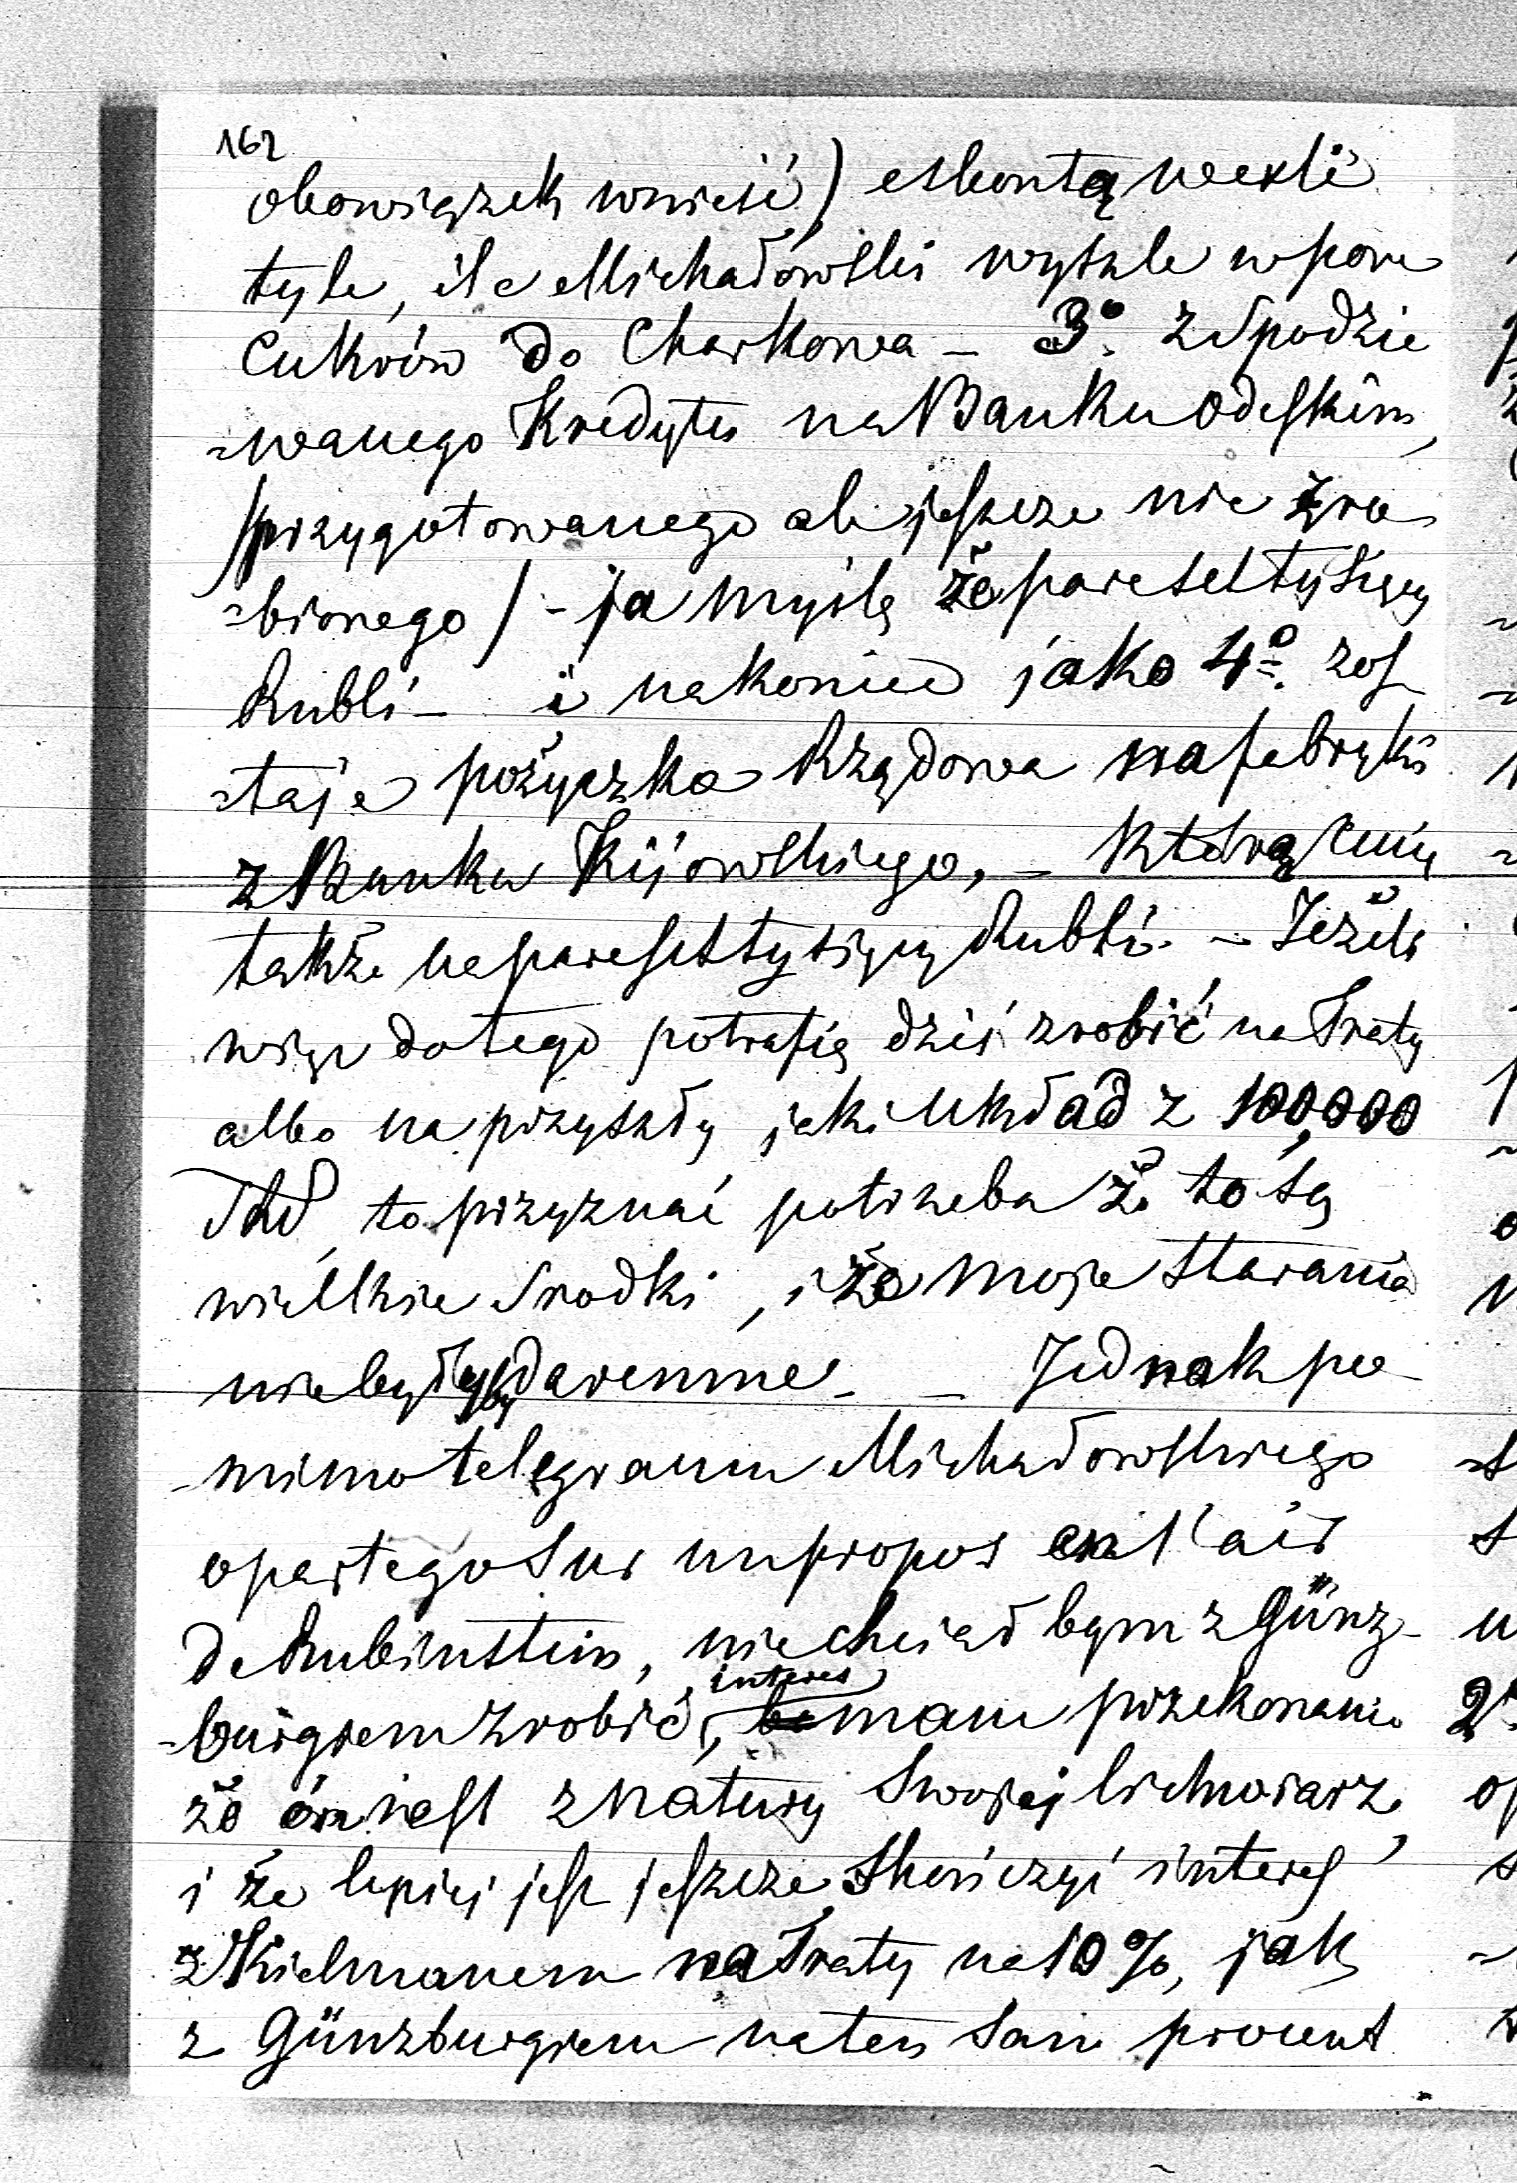 162
obowiązek wnieść) eskontą wexli
tyle, ile Michałowski wyszle w porę
Cukrów do Charkowa – 3º. z Spodzie
-wanego Kredytu na Banku Odeskim,
/przygotowanego ale jeszcze nie zro
-bionego / – ja myślę że pareset tysięcy
Rubli – i nakoniec jako 4º. zos
-taje pożyczka Rządowa na fabryki
z Banku Kijowskiego, – którą cenię
także na pareset tysięcy Rubli. – Jeżeli
więc do tego potrafię dziś zrobić na Traty
albo na przyszły jaki układ z 100,000
to przyznać potrzeba że to są
wielkie Srodki, i że moje starania
niebyłyby daremne. – Jednak po
-mimo telegramu Michałowskiego
opartego sur un propos en l'air
de Rubinstein, nie chciał bym z Günz-
-burgiem zrobić interes, bo mam przekonanie
że ón jest z natury Swojej lichwiarz,
i że lepiej jest jeszcze Skończyć interes
z Kielmanem na Traty na 10 %, jak
z Günzburgiem na ten sam procent